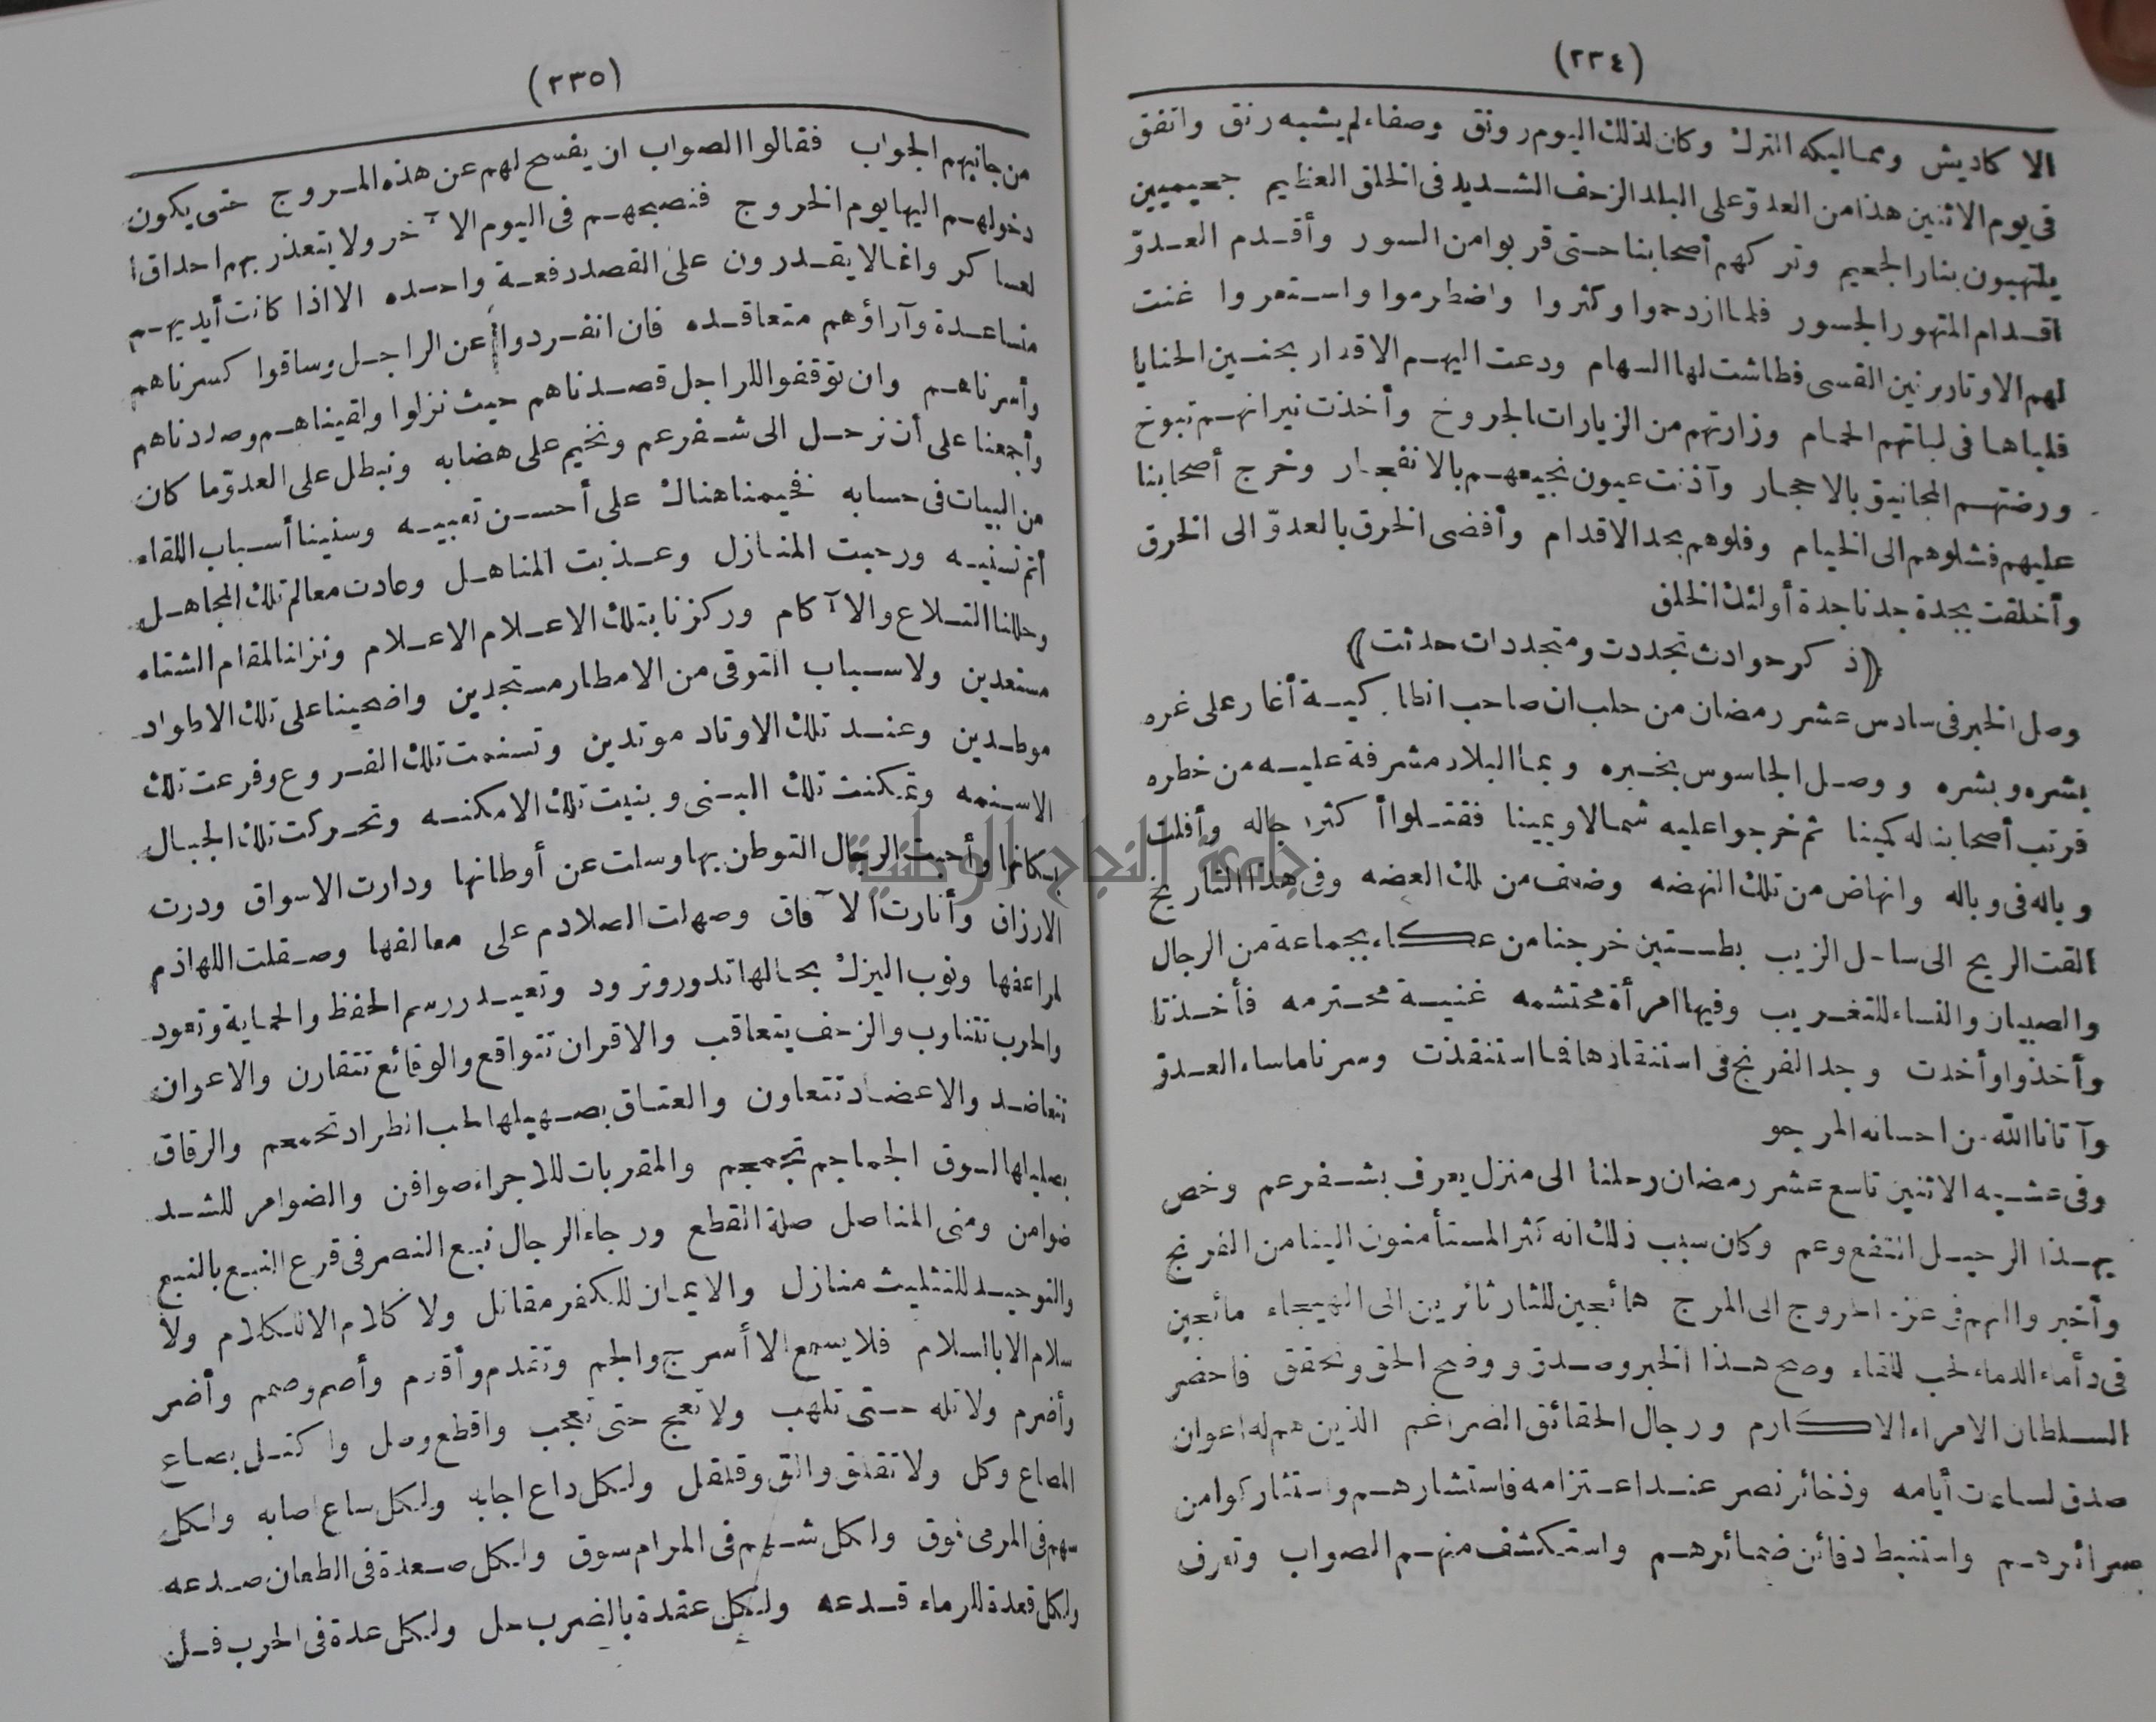 (٢٣٤)
الا كاديش ومماليكه الترك وكان لذلك اليوم رونق وصفاء لم يشبه رنق واتفق
فى يوم الاثنين هذا من العدوّ على البلد الزحف الشديد فى الخلق العظيم جحيميين
يلتهبون بنار الجحيم وتركهم أصحابنا حتى قربوا من السور وأقدم العدوّ
اقدام المتهور الجسور فلما ازدحموا وكثروا واضطرموا واستعروا غنت
لهم الاوتار برنين القسى فطاشت لها السهام ودعت اليهم الاقدار بحنين الحنايا
فلباها فى لباتهم الحمام وزارتهم من الزيارات الجروخ وأخذت نيرانهم تبوخ
ورضتهم المجانيق بالاحجار وآذنت عيون نجيعهم بالانفجار وخرج أصحابنا
عليهم فشلوهم الى الخيام وفلوهم بحد الاقدام وأفضى الخرق بالعدوّ الى الخرق
وأخلقت بجدة جدنا جدة أولئك الخلق
(ذكر حوادث تجددت ومتجددات حدثت)
وصل الخبر فى سادس عشر رمضان من حلب ان صاحب انطاكية أغار على غره
بشره وبشره ووصل الجاسوس بخبره وبما البلاد مشرفة عليه من خطره
فرتب أصحابنا له كمينا ثم خرجوا عليه شمالا ويمينا فقتلوا أكثر رجاله وأفلت
وباله فى وباله وانهاض من تلك النهضه وضعف من تلك العضه وفى هذا التاريخ
القت الريح الى ساحل الزيب بطستين خرجتا من عكاء بجماعة من الرجال
والصبيان والنساء للتغريب وفيها امرأة محتشمه غنية محترمه فأخذتا
وأخذوا وأخذت وجد الفرنج فى استنقاذها فما استنقذت وسرنا ما ساء العدوّ
وآتانا الله من احسانه المرجو
وفى عشيه الاثنين تاسع عشر رمضان رحلنا الى منزل يعرف بشفرعم وخص
بهذا الرحيل النفع وعم وكان سبب ذلك انه كثر المستأمنون الينا من الفرنج
وأخبروا انهم فى عزم الخروج الى المرج هائجين للثار ثائرين الى الهيجاء مائجين
فى دأماء الدماء لحب اللقاء وصح هذا الخبر وصدق ووضح الحق وتحقق فاحضر
السلطان الامراء الاكارم ورجال الحقائق الضراغم الذين هم له اعوان
صدق لساعات أيامه وذخائر نصر عند اعتزامه فاستشارهم واستثار كوامن
سرائرهم واستنبط دفائن ضمائرهم واستكشف منهم الصواب وتعرف
(٢٣٥)
من جانبهم الجواب فقالوا الصواب ان يفسح لهم عن هذه المروج حتى يكون
دخولهم اليها يوم الخروج فنصبحهم فى اليوم الآخر ولا يتعذر بهم احداق ا
لعساكر وانما لا يقدرون على القصد دفعة واحده الا اذا كانت أيديهم
متساعدة وآراؤهم متعاقده فان انفردوا عن الراجل وساقوا كسرناهم
وأسرناهم وان توقفوا للراجل قصدناهم حيث نزلوا ولقيناهم وصددناهم
وأجمعنا على أن نرحل الى شفرعم ونخيم على هضابه ونبطل على العدوّ ما كان
من البيات فى حسابه فخيمنا هناك على أحسن تعبيه وسنينا أسباب اللقاء
أتم تسنيه ورحبت المنازل وعذبت المناهل وعادت معالم تلك المجاهل
وحللنا التلاع والآكام وركزنا بتلك الاعلام الاعلام ونزلنا لمقام الشتاء
مستعدين ولاسباب التوقى من الامطار مستجدين واضحينا على تلك الاطواد
موطدين وعند تلك الاوتاد موتدين وتسنمت تلك الفروع وفرعت تلك
الاسنمه وتمكنت تلك البنى وبنيت تلك الامكنه وتحركت تلك الجبال
بسكانها وأحبت الرجال التوطن بها وسلت عن أوطانها ودارت الاسواق ودرت
الارزاق وأنارت الآفاق وصهلت الصلادم على معالفها وصقلت اللهاذم
لمراعفها ونوب اليزك بحالها تدور وترود وتعيد رسم الحفظ والحماية وتعود
والحرب تتناوب والزحف يتعاقب والاقران تتواقع والوقائع تتقارن والاعوان
تتعاضد والاعضاد تتعاون والعتاق بصهيلها لحب الطراد تحمحم والرقاق
بصليلها لسوق الجماجم تجمجم والمقربات للاجراء صوافن والضوامر للشد
ضوامن ومنى المناصل صلة القطع ورجاء الرجال نبع النصر فى قرع النبع بالنبع
والتوحيد للتثليث منازل والايمان للكفر مقاتل ولا كلام الا الكلام ولا
سلام الا بالسلام فلا يسمع الا أسرج والجم وتقدم وأقدم وأصم وصمم وأضر
وأضرم ولا تله حتى تلهب ولا تعج حتى تعجب واقطع وصل واكتل بصاع
المصاع وكل ولا تقلق والق وقلقل ولكل داع اجابه ولكل ساع اصابه ولكل
سهم فى المرمى فوق ولكل شهم فى المرام سوق ولكل صعدة فى الطعان صدعه
ولكل قعدة للرماء قدعه ولكل عقدة بالضرب حل ولكل عدة فى الحرب فل